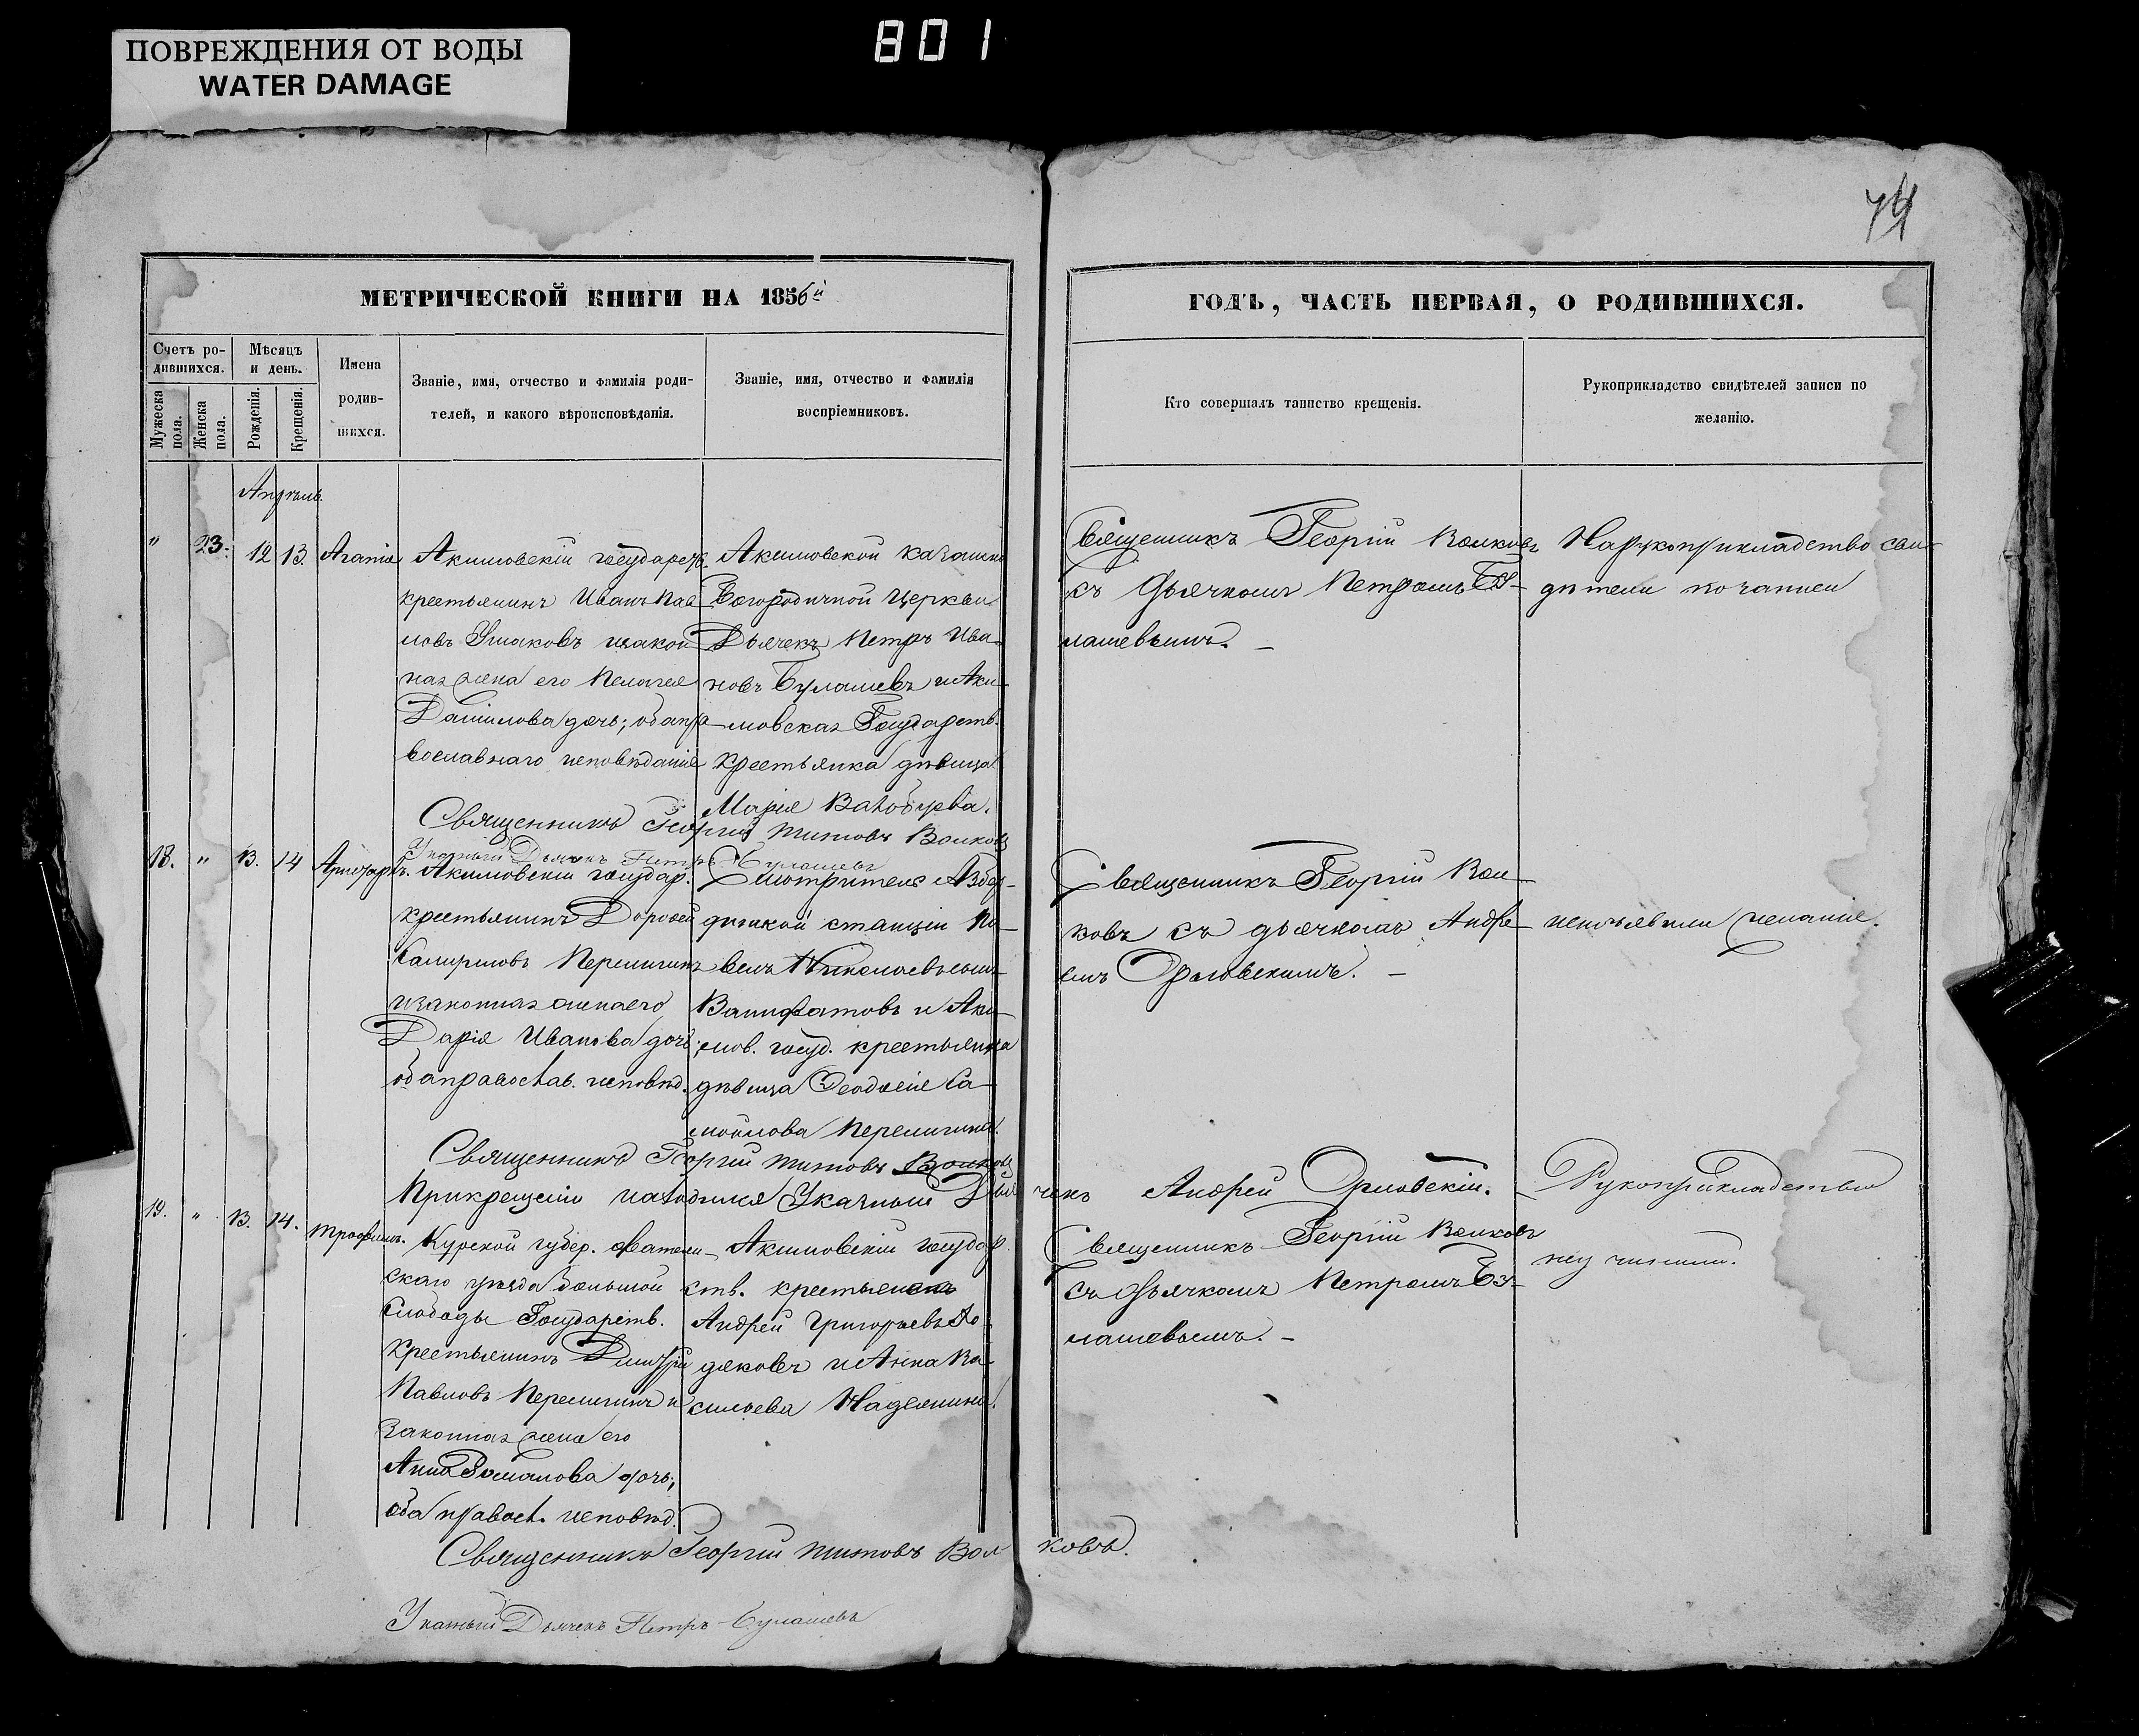 ПОВРЕЖДЕНИЯ ОТ ВОДЫ
WATER DAMAGE
801
74
МЕТРИЧЕСКОЙ КНИГИ НА 1856й
ГОДЪ, ЧАСТЬ ПЕРВАЯ, О РОДИВШИХСЯ.
Счетъ ро-
дившихся.
Мужеска
пола.
Женска
пола.
Мѣсяцъ
и день.
Рожденія.
Крещенія.
Имена
родив-
шихся.
Званіе, имя, отчество и фамилія роди-
телей, и какого вѣроисповѣданія.
Званіе, имя, отчество и фамилія
воспріемниковъ.
Кто совершалъ таинство крещенія.
Рукоприкладство свидѣтелей записи по
желанію.
Апрѣль.
" 23. 12 13. Агапія
Акимовскій государств.
крестьянинъ Иванъ Пав
ловъ Ушаковъ изакон
ная жена его Пелагея
Даніилова дочь; оба пра
вославнаго исповѣданія
Акимовской казанско
Богородичной Церкви
Дьячекъ Петръ Ива
новъ Булашевъ и Аки-
мовская Государств.
крестьянка дѣвица
Марія
Священникъ Георгій Волковъ
съ Дьячкомъ Петромъ Бу-
лашевымъ. –
Нарукоприкладство сви-
дѣтели по записи
Священникъ Георгій Титовъ Волковъ
Указный Дьячекъ Петръ Булашевъ
18. " 13. 14
Акимовскій государ.
крестьянинъ Дороѳей
Перелигинъ
изаконная жена его
Дарія Иванова дочь;
оба православ. исповѣд.
Смотритель
станціи Па-
велъ Николаевъ сынъ
и Аки-
мов. госуд. крестьянка
дѣвица Ѳеодосія Са-
мойлова Перелигина.
Священникъ Георгій Вол-
ковъ съ дьячкомъ Андре-
емъ Орловскимъ. –
неизъявили желанія.
Священникъ Георгій Титовъ Волковъ
При крещеніи находился Указный Дья чекъ Андрей Орловскій. –
19. " 13. 14. Трофимъ.
Курской губер.
скаго уѣзда большой
слободы Государств.
крестьянинъ Дмитрій
Павловъ Перелигинъ и
законная жена его
Анна Романова дочь;
оба правосл. исповѣд.
Акимовскій государ
ств. крестьянинъ
Андрей Григорьевъ
и Анна Ва
сильева
Священникъ Георгій Волковъ
съ Дьячкомъ Петромъ Бу-
лашевымъ. –
Рукоприкладства
неучинили.
Священникъ Георгій Титовъ Вол ковъ.
Указный Дьячекъ Петръ Булашевъ